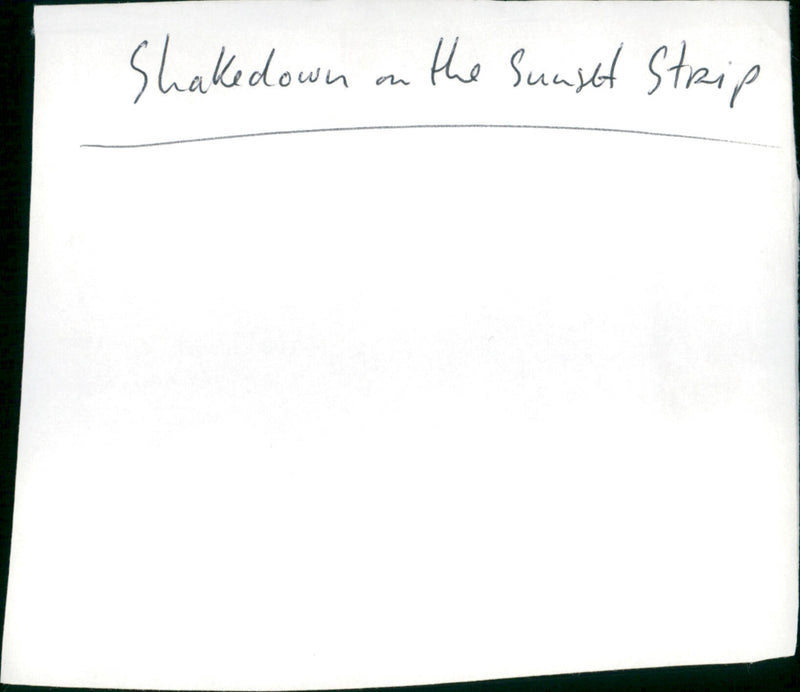 Shakedown on the Sunset Strip